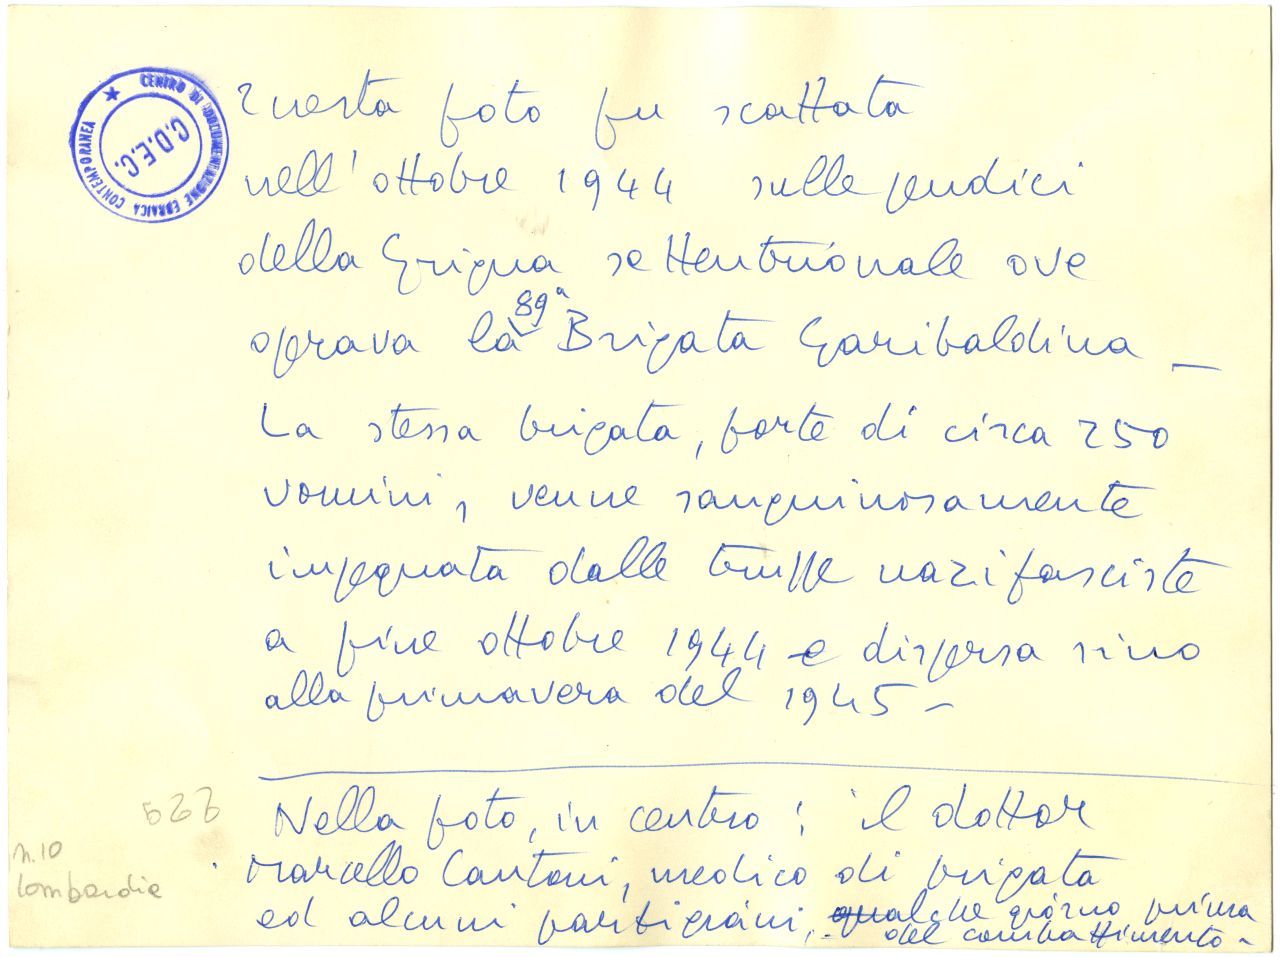 CENTRO DI DOCUMENTAZIONE EBRAICA CONTEMPORANEA
C.D.E.C.
Questa foto fu scattata
nell'ottobre 1944 sulle pendici
della Grigna settentrionale ove
oprava la 89ª Brigata Garibaldina —
La stessa brigata, forte di circa 250
uomini, venne sanguinosamente
impegnata dalle truppe nazifasciste
a fine ottobre 1944 e dispersa sino
alla primavera del 1945 –
Nella foto, in centro: il dottor
Marcello Cantoni, medico di brigata
ed alcuni partigiani, qualche giorno prima
del combattimento –
522
n. 10
lombardia